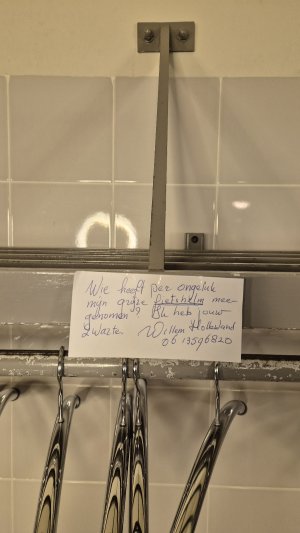 Wie heeft per ongeluk
mijn grijze fietshelm mee-
genomen? Ik heb jouw
zwarte. Willem Holleeland
06 13596820